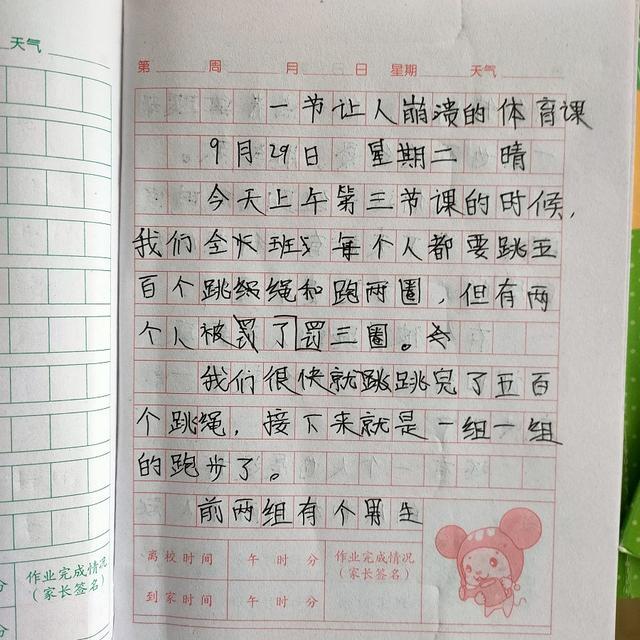 天气
第 周 月 日 星期 天气
一节让人崩溃的体育课
9月29日 星期二 晴
今天上午第三节课的时候,
我们全班每个人都要跳五
百个跳绳和跑两圈,但有两
个人被罚了罚三圈。
我们很快就跳跳完了五百
个跳绳,接下来就是一组一组
的跑步了。
前两组有个男生
离校时间 午 时 分 作业完成情况
(家长签名)
到家时间 午 时 分
分 作业完成情况
(家长签名)
分